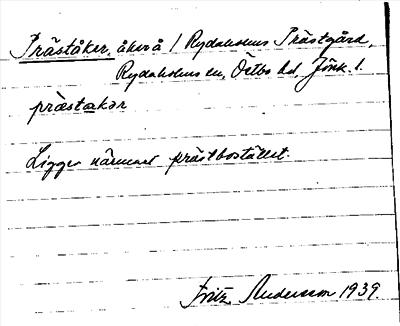 Präståker, åker å / Rydaholms Prästgård,
Rydaholms sn, Östbo hd, Jönk. l.
præstækər
Ligger närmast prästbostället.
Fritz Andersson 1939